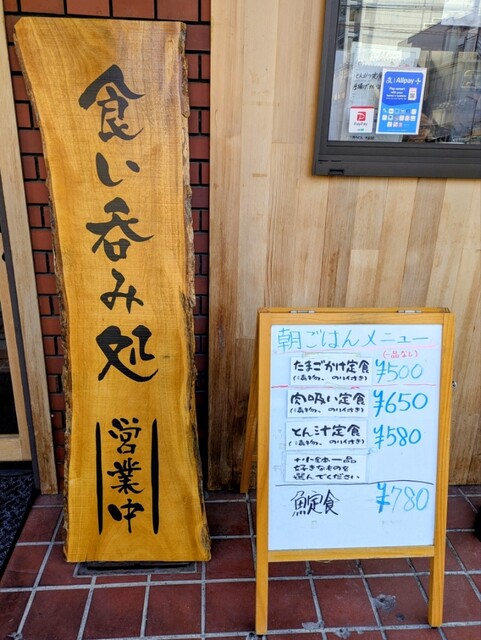 食い呑み処
営業中
Alipay+
PayPay
朝ごはんメニュー
(一品ない)
たまごかけ定食
¥500
(漬物、のり付き)
肉吸い定食
¥650
(漬物、のり付き)
とん汁定食
¥580
(漬物、のり付き)
+小鉢一品
好きなものを
選んでください
魚定食
¥780